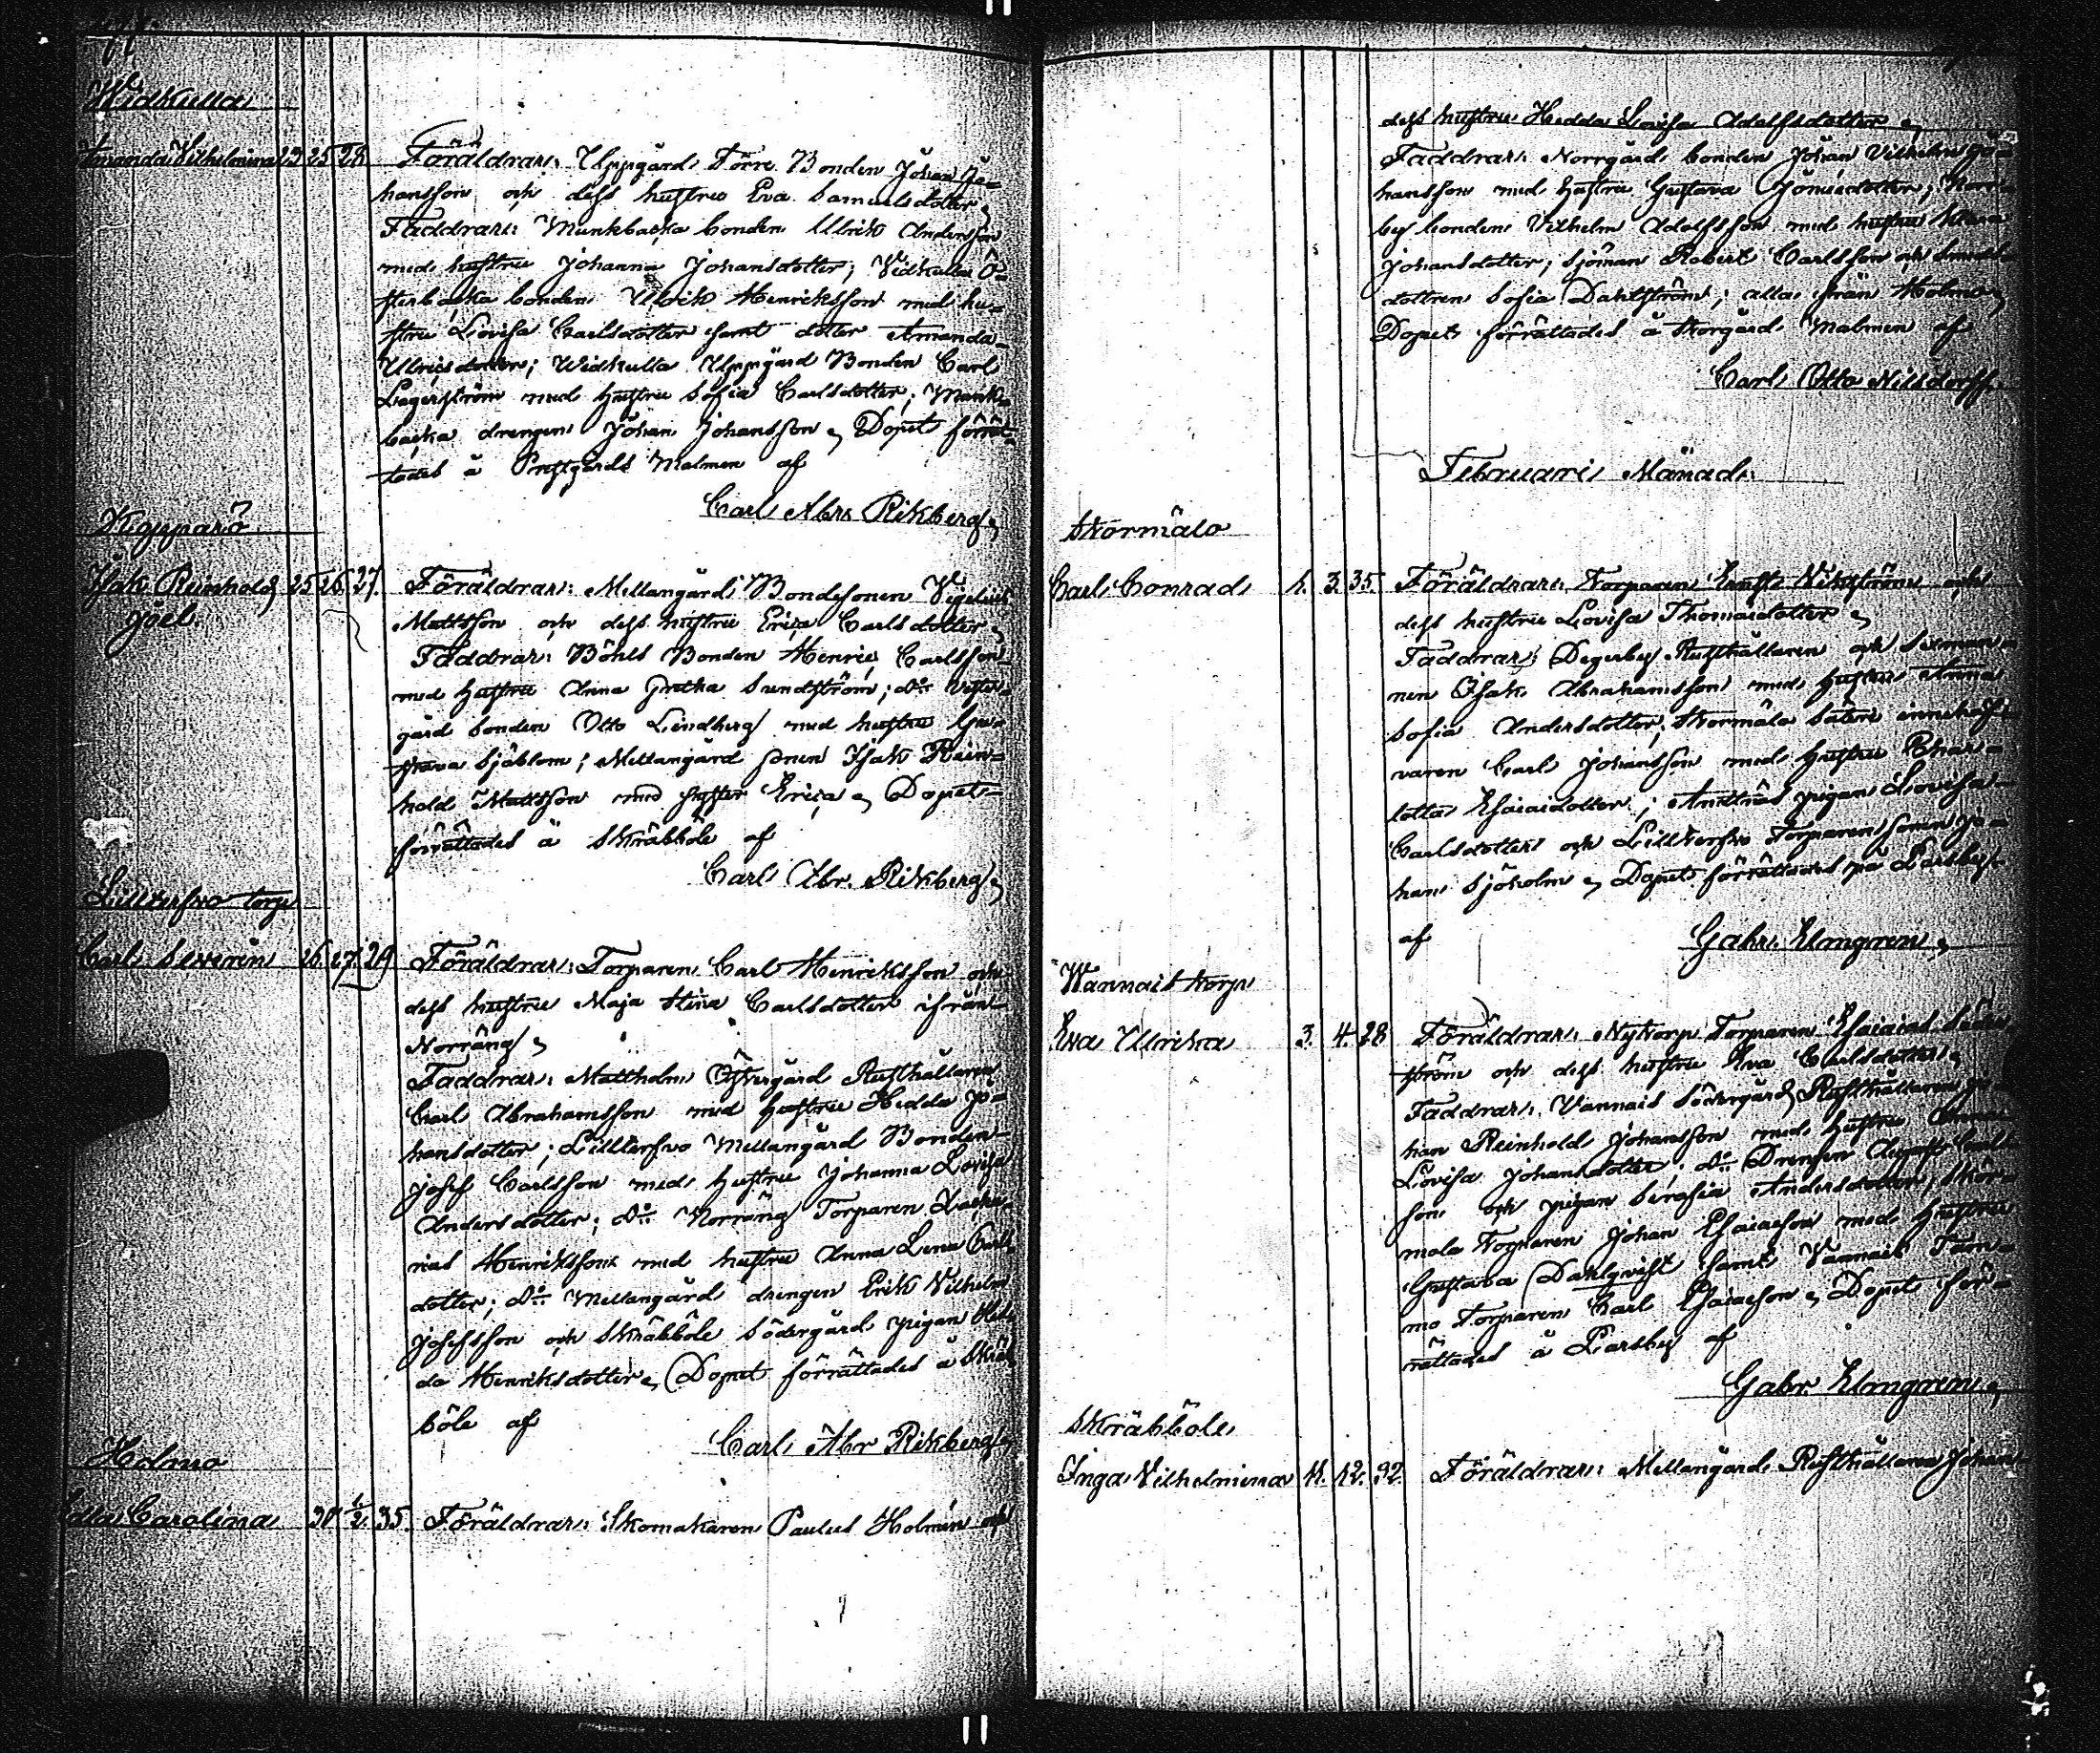 Widkulla
Amanda Vilhelmina 23 25 28 Föräldrar: Uppgård Förre Bonden Johan Jo-
hansson och dess hustru Eva Samuelsdotter,
Faddrar: Munkbacka bonden Ulrik Andersson
med hustru Johanna Johansdotter; Vidkulla Ö-
sterbacka bonden Ulrik Henriksson med hu-
stru Lovisa Carlsdotter samt dotter Amanda
Ulricsdotter; Widkulla Uppgård Bonden Carl
Lagerström med hustru Sofia Carlsdotter; Munk-
backa drengen Johan Johansson, Dopet förrät-
tades å Prestgårds Malmen af
Carl Abr. Rikberg,
Kopparö
Isak Reinhold 25 26. 27. Föräldrar: Mellangård Bondesonen Vigelius
Joel.
Mattsson och dess hustru Erica Carlsdotter,
Faddrar: Böhls Bonden Henric Carlsson
med hustru Anna Gretha Sundström; d:o Vester-
gård bonden Otto Lindberg med hustru Gu-
stava Sjöblom; Mellangård sonen Isak Rein-
hold Mattsson med syster Erica, Dopet
förrättades å Skräbböle af
Carl Abr. Rikberg,
Lilltervo torp
Carl Severin 26. 27. 29 Föräldrar: Torparen Carl Henriksson och
dess hustru Maja Stina Carlsdotter ifrån
Norräng,
Faddrar: Mattholm Östergård Rusthållaren
Carl Abrahamsson med hustru Hedda Jo-
hansdotter; Lilltervo Mellangård Bonden
Josef Carlsson med hustru Johanna Lovisa
Andersdotter; d:o Norräng Torparen Zacha-
rias Henriksson med hustru Anna Lena Carls-
dotter; d:o Mellangård drengen Erik Vilhelm
Josefsson och Skräbböle Södergård pigan Hed-
da Henriksdotter, Dopet förrättades å Skräb-
böle af
Carl Abr Rikberg,
Holmo
Edla Carolina 30 1/2. 35. Föräldrar: Skomakaren Paulus Holmén och
dess hustru Hedda Lovisa Adolfsdotter,
Faddrar: Norrgård bonden Johan Vilhelm Jo-
hansson med hustru Gustava Jömisdotter; Norr-
by bonden Vilhelm Adolfsson med hustru
Johansdotter; sjöman Robert Carlsson och
dottren Sofia Dahlström; alla från Holmo,
Dopet förrättades å Storgård Malmen af
Carl Otto Nilsdorff.
Februari Månad.
Stormälo
Carl Conrad 1. 3. 35. Föräldrar: Torparen Ernst Vikström och
dess hustru Lovisa Thomasdotter,
Faddrar: Degerby Rusthållaren och
Isak Abrahamsson med hustru Anna
Sofia Andersdotter; Stormälo säteri inneha-
varen Carl Johansson med hustru Char-
lotta Esaiaidotter; Anttnäs pigan Lovisa
Carlsdotter och Lilltervo Torparen sonen Jo-
han Sjöholm, Dopet förrättades på Larsby
af
Gabr. Elmgren,
Wannais torp
Eva Ulrika 3. 4. 28 Föräldrar: Nytorp Torparen Esaias Söder-
ström och dess hustru Eva Carlsdotter,
Faddrar: Vannais Södergård Rusthållaren Jo-
han Reinhold Johansson med hustru
Lovisa Johansdotter; d:o Drengen August Carls-
son och pigan Serafia Andersdotter; Stor-
mälo Torparen Johan Esaiaeson med hustru
Gustava Dahlqvist samt Vannais Tam-
mo Torparen Carl Esaiaeson, Dopet för-
rättades å Larsby af
Gabr Elmgren,
Skräbböle
Inga Vilhelmina 11. 12. 32. Föräldrar: Mellangård Rusthållaren Johan